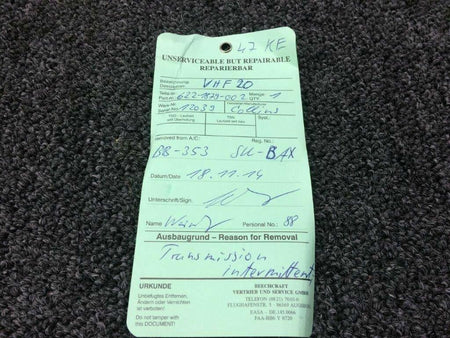 47 KE
UNSERVICEABLE BUT REPAIRABLE
REPARIERBAR
Bezeichnung
Description VHF 20
Teile-Nr. Menge
Part.No. 622-1879-002 QTY. 1
Werk-Nr.
Serial No. 12039 Collins
TSO - Laufzeit TSN - Syst.
seit Überholung Laufzeit seit neu
Removed from A/C: Reg. No.
BB-353 SU-BAX
Datum/Date 18.11.14
Unterschrift/Sign.
Name Personal No.: 88
Ausbaugrund – Reason for Removal
Transmission
intermittent
URKUNDE
Unbefugtes Entfernen,
Ändern oder Vernichten
ist verboten!
Do not tamper with
this DOCUMENT!
BEECHCRAFT
VERTRIEB UND SERVICE GMBH
TELEFON (08 21) 70 03-0
FLUGHAFENSTR. 5 - 86169 AUGSBURG
EASA - DE.145.0066
FAA-BB6 Y 872O